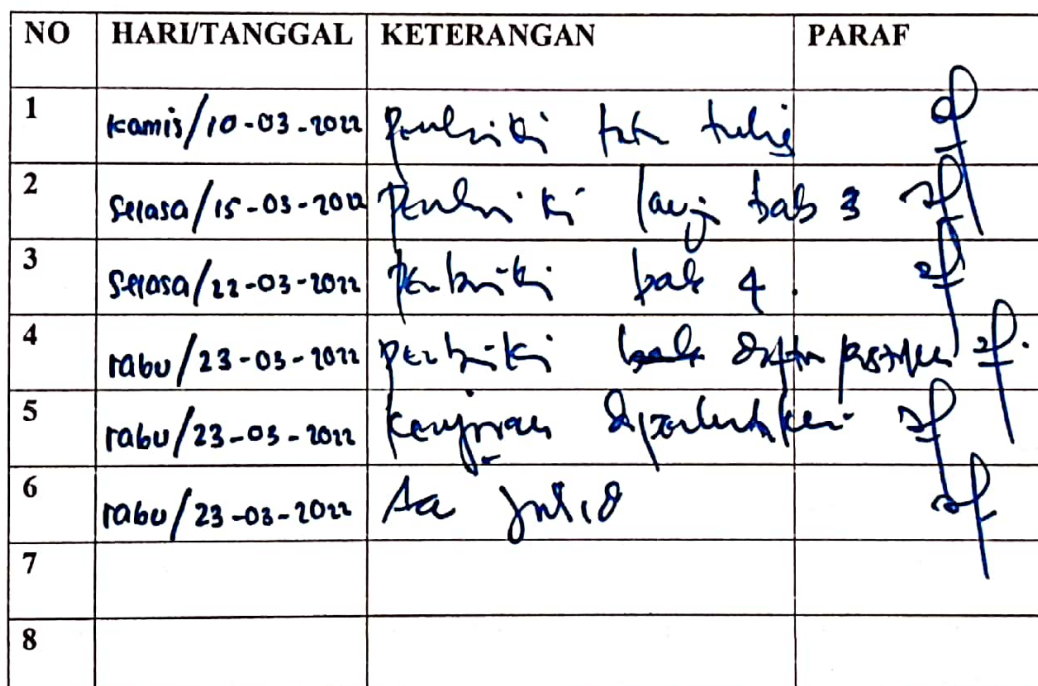 NO HARI/TANGGAL KETERANGAN PARAF
1 Kamis/10-03-2022 Perbaiki tata tulis
2 Selasa/15-03-2022 Perbaiki bab 3
3 Selasa/22-03-2022 Perbaiki bab 4
4 rabu/23-03-2022 Perbaiki daftar pustaka
5 rabu/23-03-2022
6 rabu/23-03-2022 Acc jilid
7
8